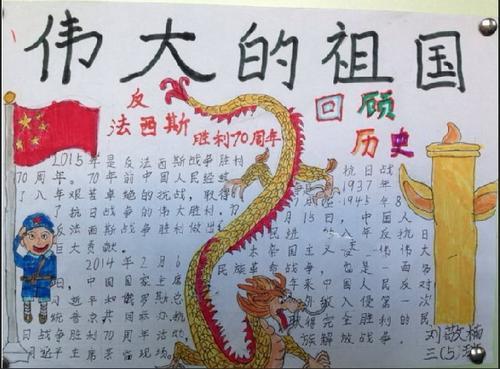 伟大的祖国
反
法西斯
胜利70周年
回顾
历史
2015年是反法西斯战争胜利
70周年。70年前中国人民经
了八年艰苦卓绝的抗战,取得
了抗日战争的伟大胜利,
反法西斯战争胜利做出
巨大贡献。
2014年2月6
日,中国国家主席
习近平和俄罗斯总
统普京共同办抗
日战争胜利70周年活动,
习近平主席亲临现场。
抗日战
1937年
1945年8
月15日,中国人
民 反抗日
本帝国主义 一伟大
民族革命战争, 也是一百多
年来中国人民反对
入侵第一次
取得完全胜利的民
族解放战争。
刘敬楠
三(5)班